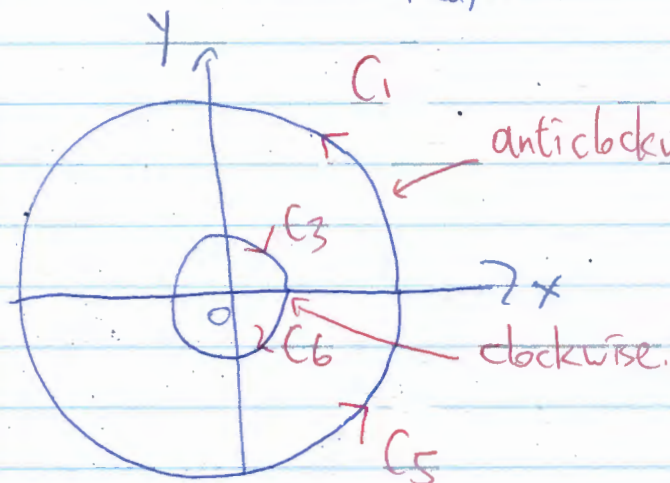 y
C1
anticlockw
C3
x
O
C6
clockwise.
C5